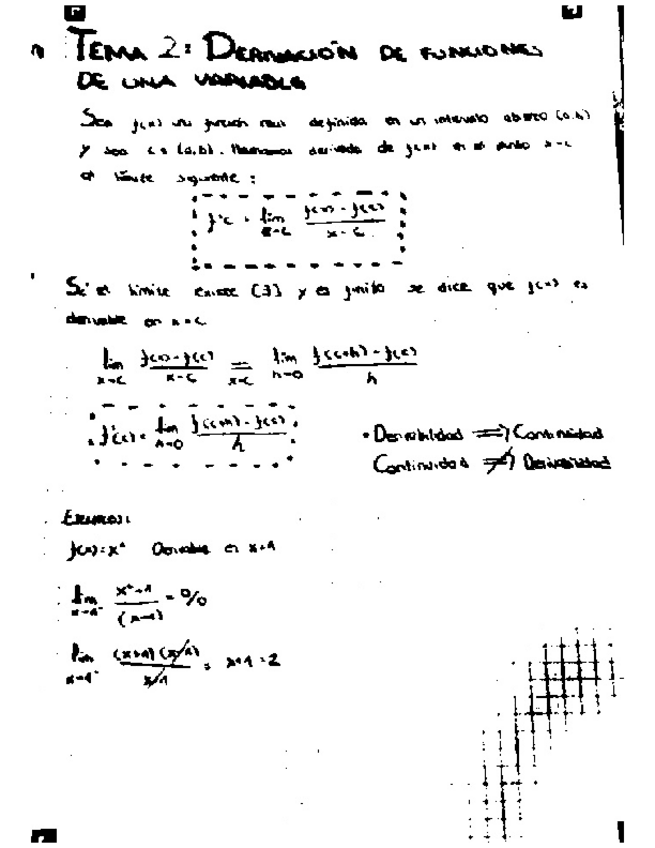 TEMA 2: DERIVACIÓN DE FUNCIONES
DE UNA VARIABLE
Sea f(x) una función real definida en un intervalo abierto (a,b)
y sea c ε (a,b). Llamamos derivada de f(x) en el punto x=c
al límite siguiente :
f'c = lim x→c f(x) - f(c) / x - c
Si el límite existe (∃) y es finito se dice que f(x) es
derivable en x=c
lim x→c f(x) - f(c) / x - c = x→c lim h→0 f(c+h) - f(c) / h
f'(c) = lim h→0 f(c+h) - f(c) / h
• Derivabilidad ⇒ Continuidad
Continuidad ⇏ Derivabilidad
EJEMPLO:
f(x) = x² Derivable en x=1
lim x→1 x²-1 / (x-1) = 0/0
lim x→1 (x+1)(x-1) / x-1 = x+1 = 2